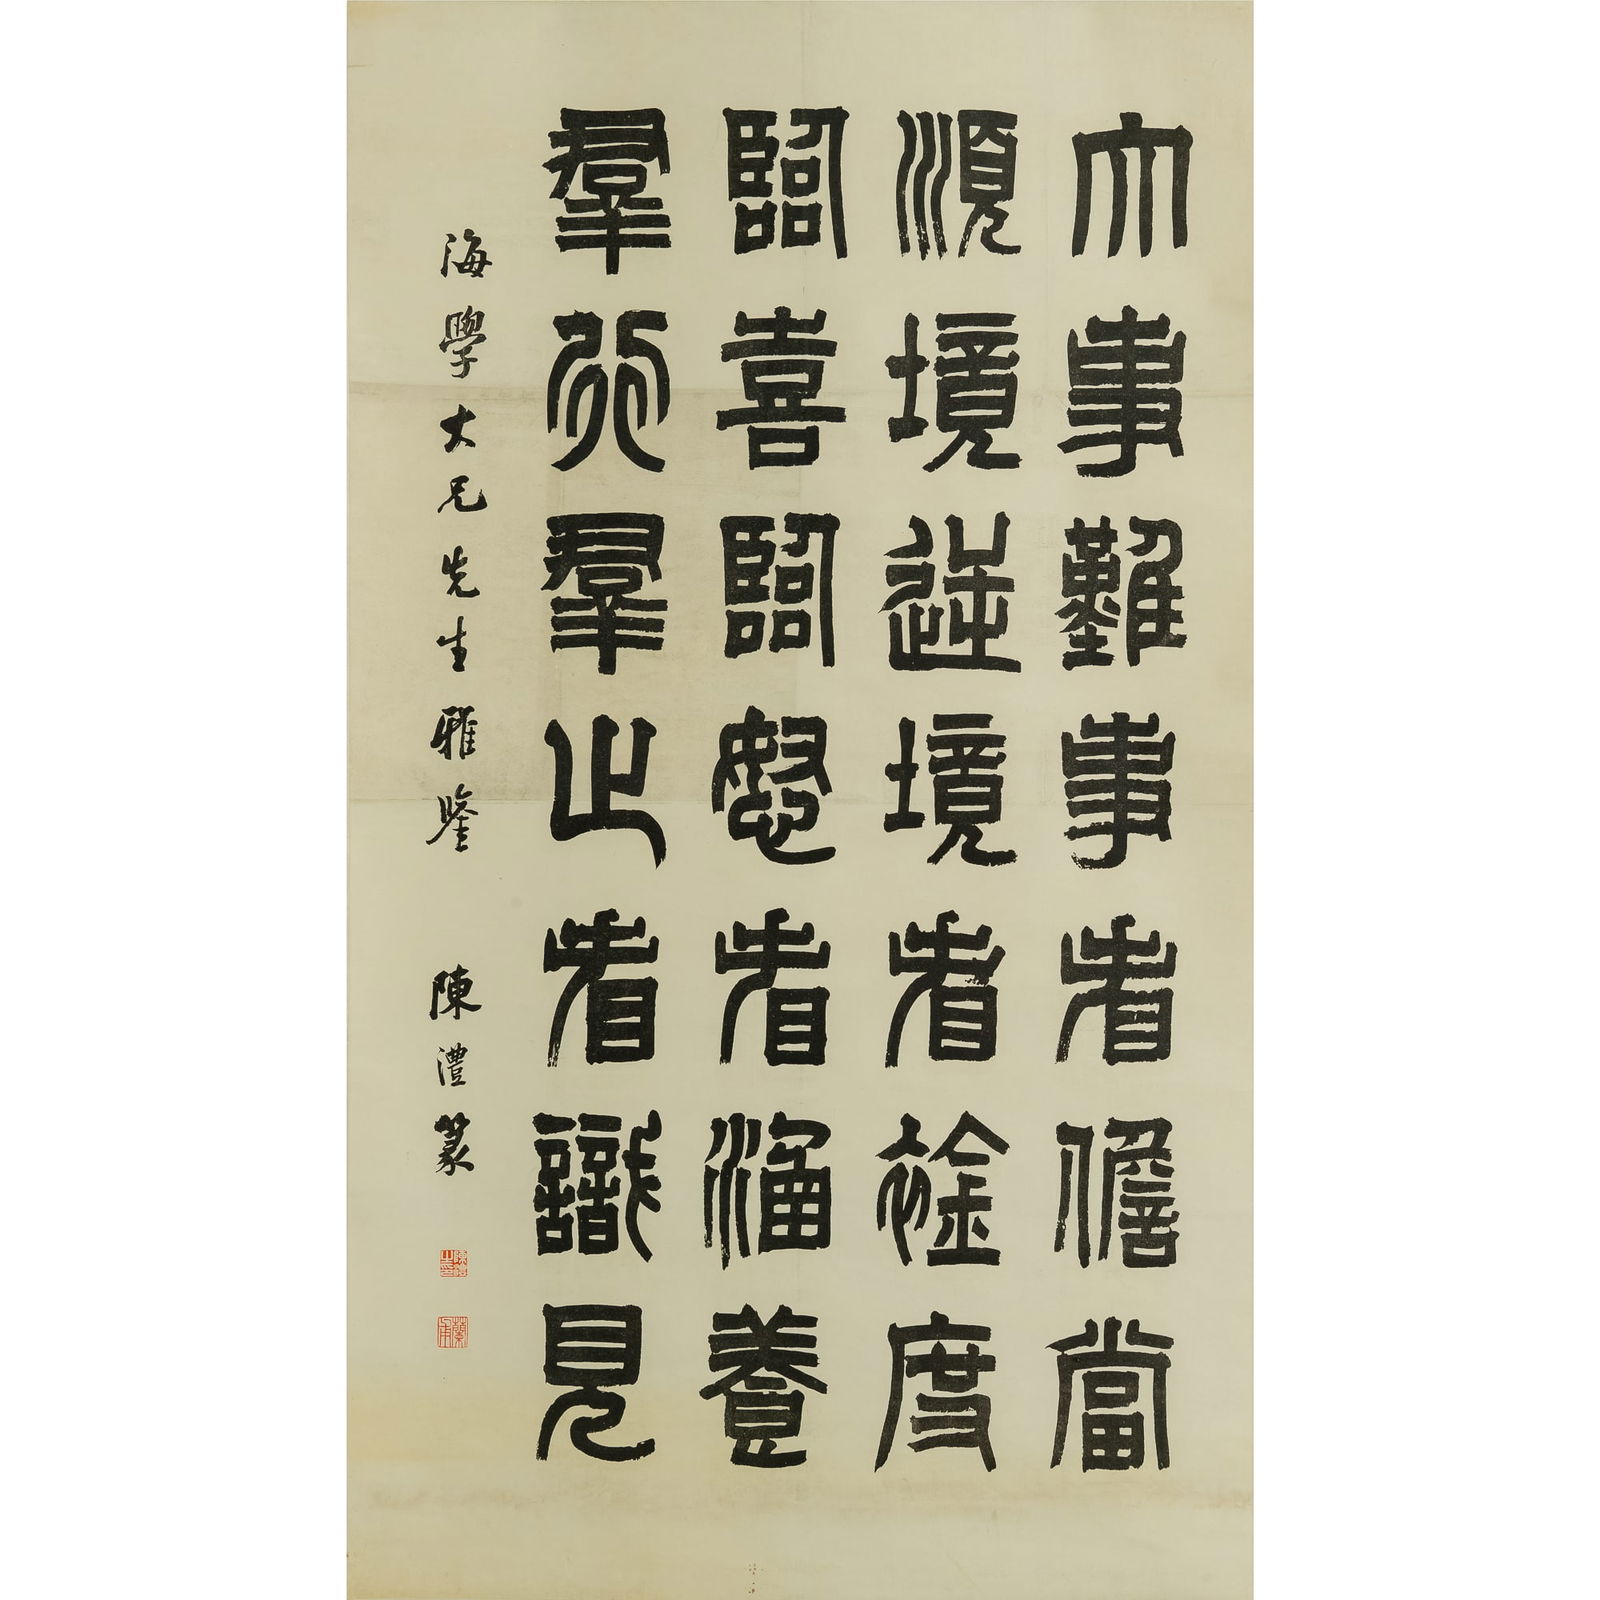 大事難事看儋當
順境逆境看襟度
臨喜臨怒看涵養
羣行羣止看識見
海學大兄先生雅鑒 陳澧篆
陳澧之印
蘭甫